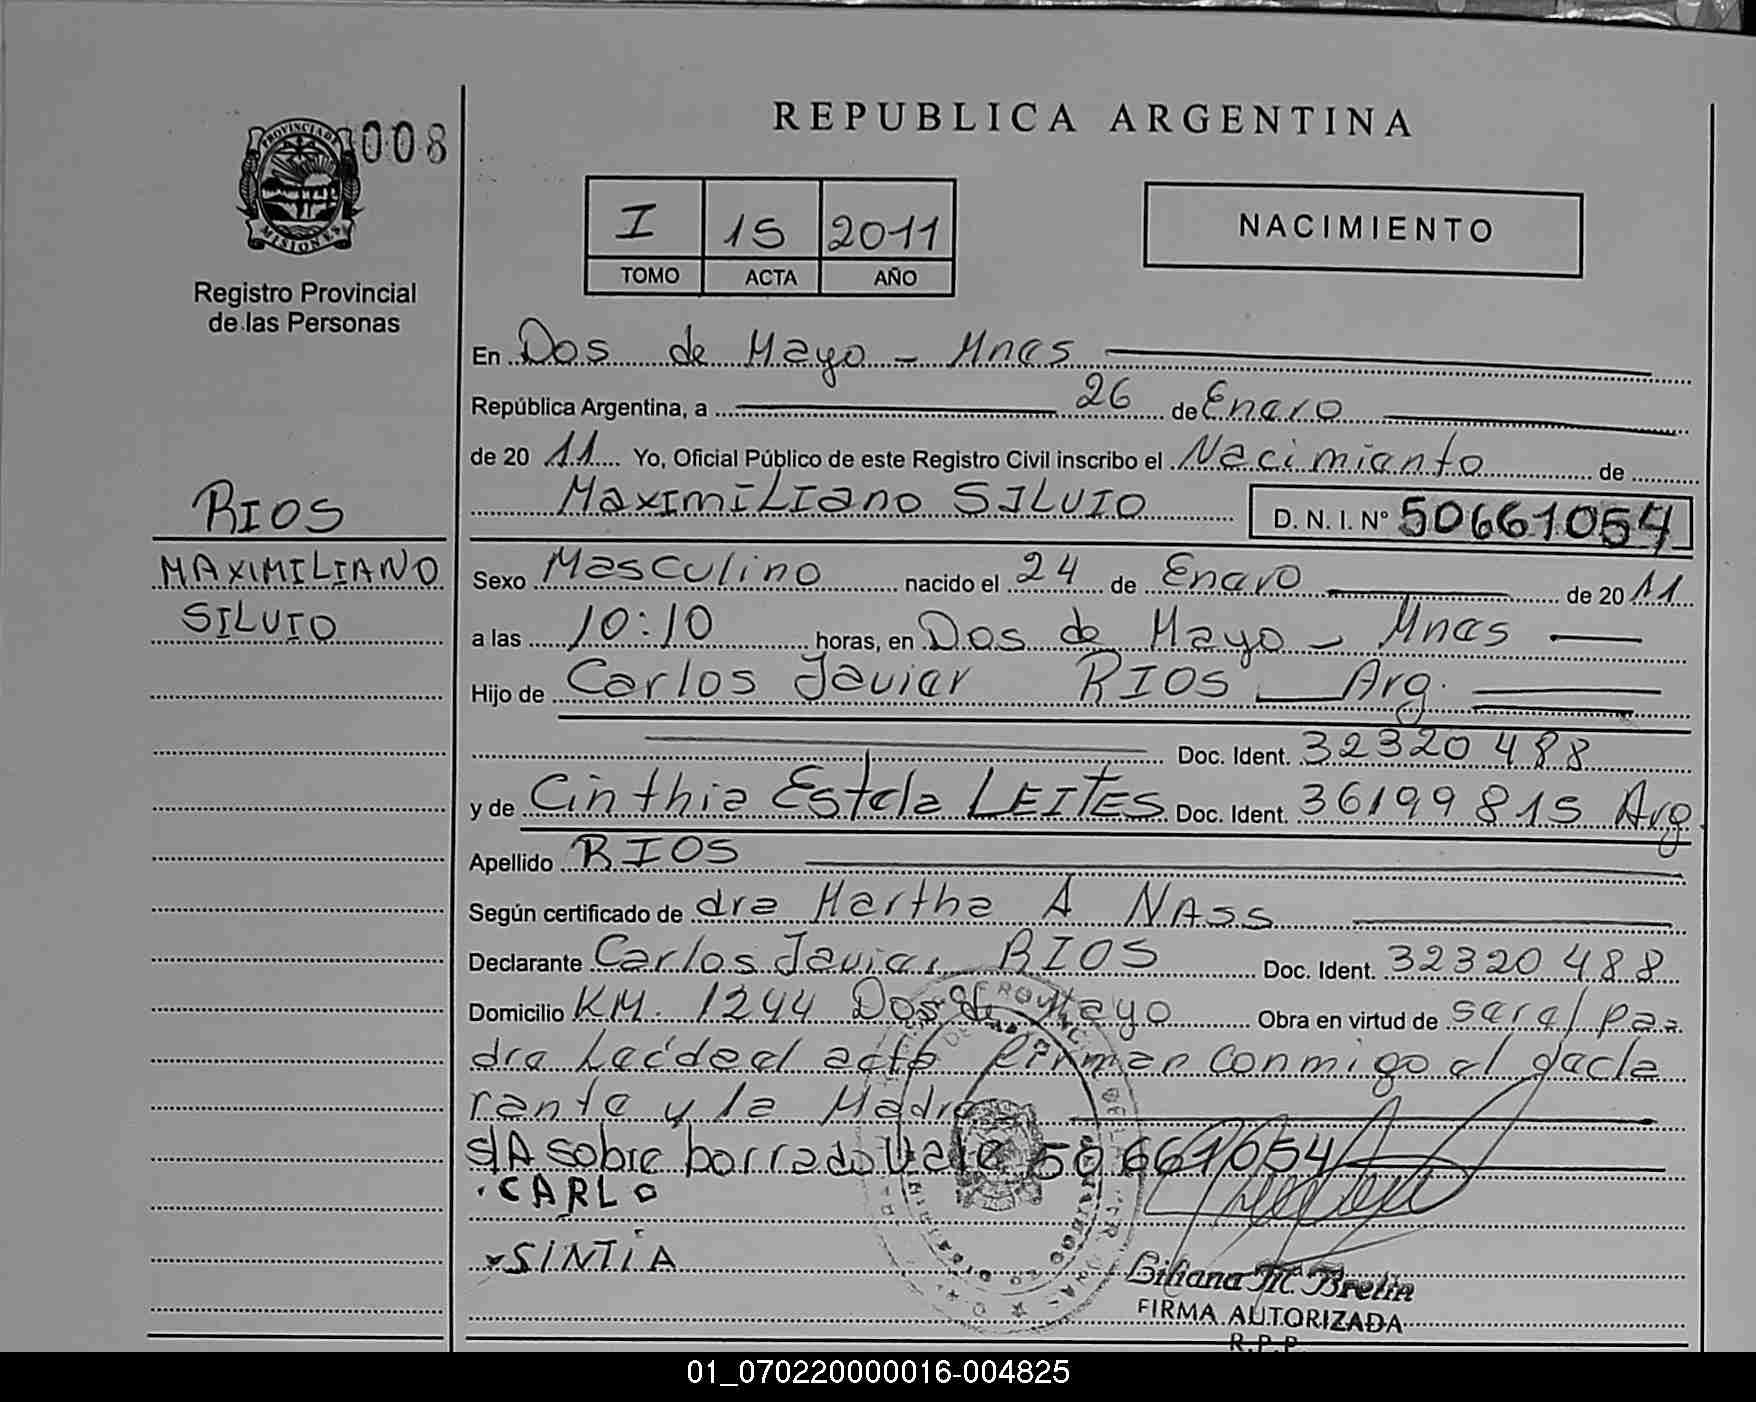 REPUBLICA ARGENTINA
PROVINCIA DE MISIONES
008
Registro Provincial
de las Personas
I 15 2011
TOMO ACTA AÑO
NACIMIENTO
RIOS
MAXIMILIANO
SILVIO
En Dos de Mayo - Mnes
República Argentina, a 26 de Enero
de 20 11 Yo, Oficial Público de este Registro Civil inscribo el Nacimiento de
Maximiliano SILVIO D. N. I. Nº 50661054
Sexo Masculino nacido el 24 de Enero de 20 11
a las 10:10 horas, en Dos de Mayo - Mnes
Hijo de Carlos Javier RIOS Arg.
Doc. Ident. 32320488
y de Cinthia Estela LEITES Doc. Ident. 36199815 Arg
Apellido RIOS
Según certificado de dra Martha A NASS
Declarante Carlos Javier RIOS Doc. Ident. 32320488
Domicilio KM. 1244 Dos de Mayo Obra en virtud de ser el pa=
dre Leída el acta firman conmigo el decla
rante y la Madre
S/A sobre borrado Vale 50661054
CARLO
SINTIA
Liliana M. Bretin
FIRMA AUTORIZADA
R.P.P.
01_070220000016-004825